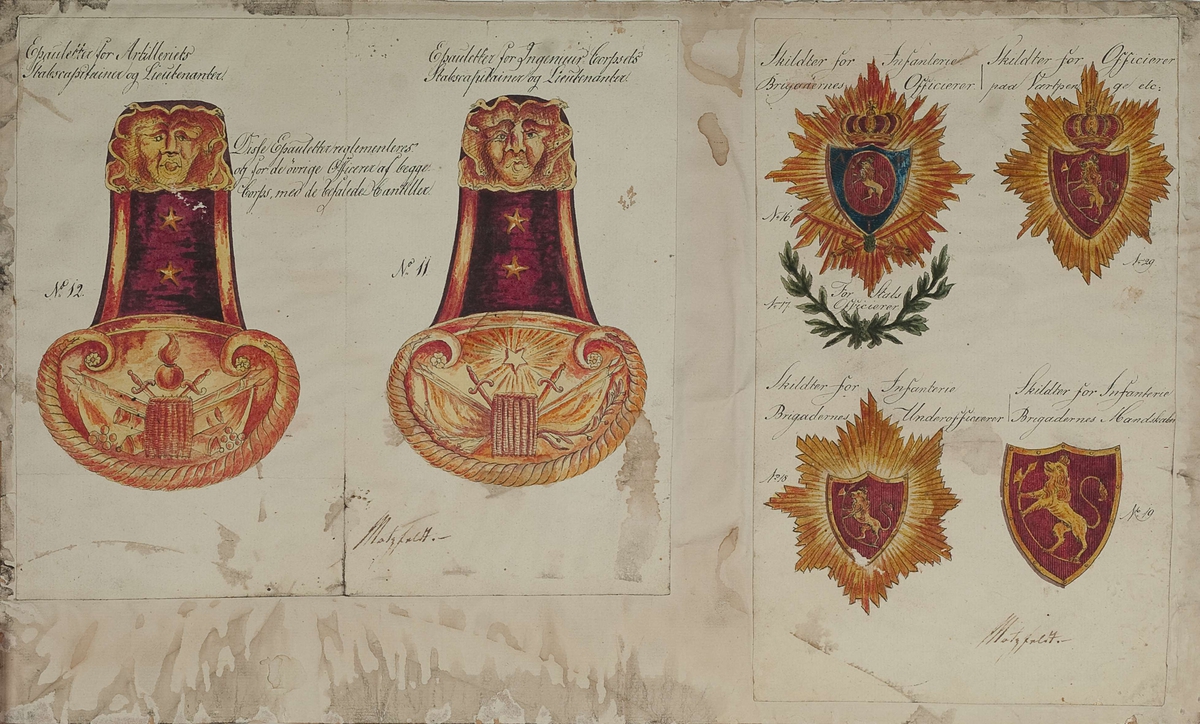 Epauletter for Artilleriets
Stabscapitainer og Lieutenanter.
Epauletter for Ingenieur Corpsets
Stabscapitainer og Lieutenanter.
Disse Epauletter reglementeres
og for de øvrige Officerer af begge
Corps, med de befalede Cantiller.
No 12.
No 11
Motzfeldt.
Skildter for Infanterie
Brigadernes Officierer
No 16.
No 17
For Stabs
Officierer
Skildter for Officierer
paa Vartpenge etc:
No 29
Skildter for Infanterie
Brigadernes Underofficierer
No 18
Skildter for Infanterie
Brigadernes Mandskaber
No 19.
Motzfeldt.